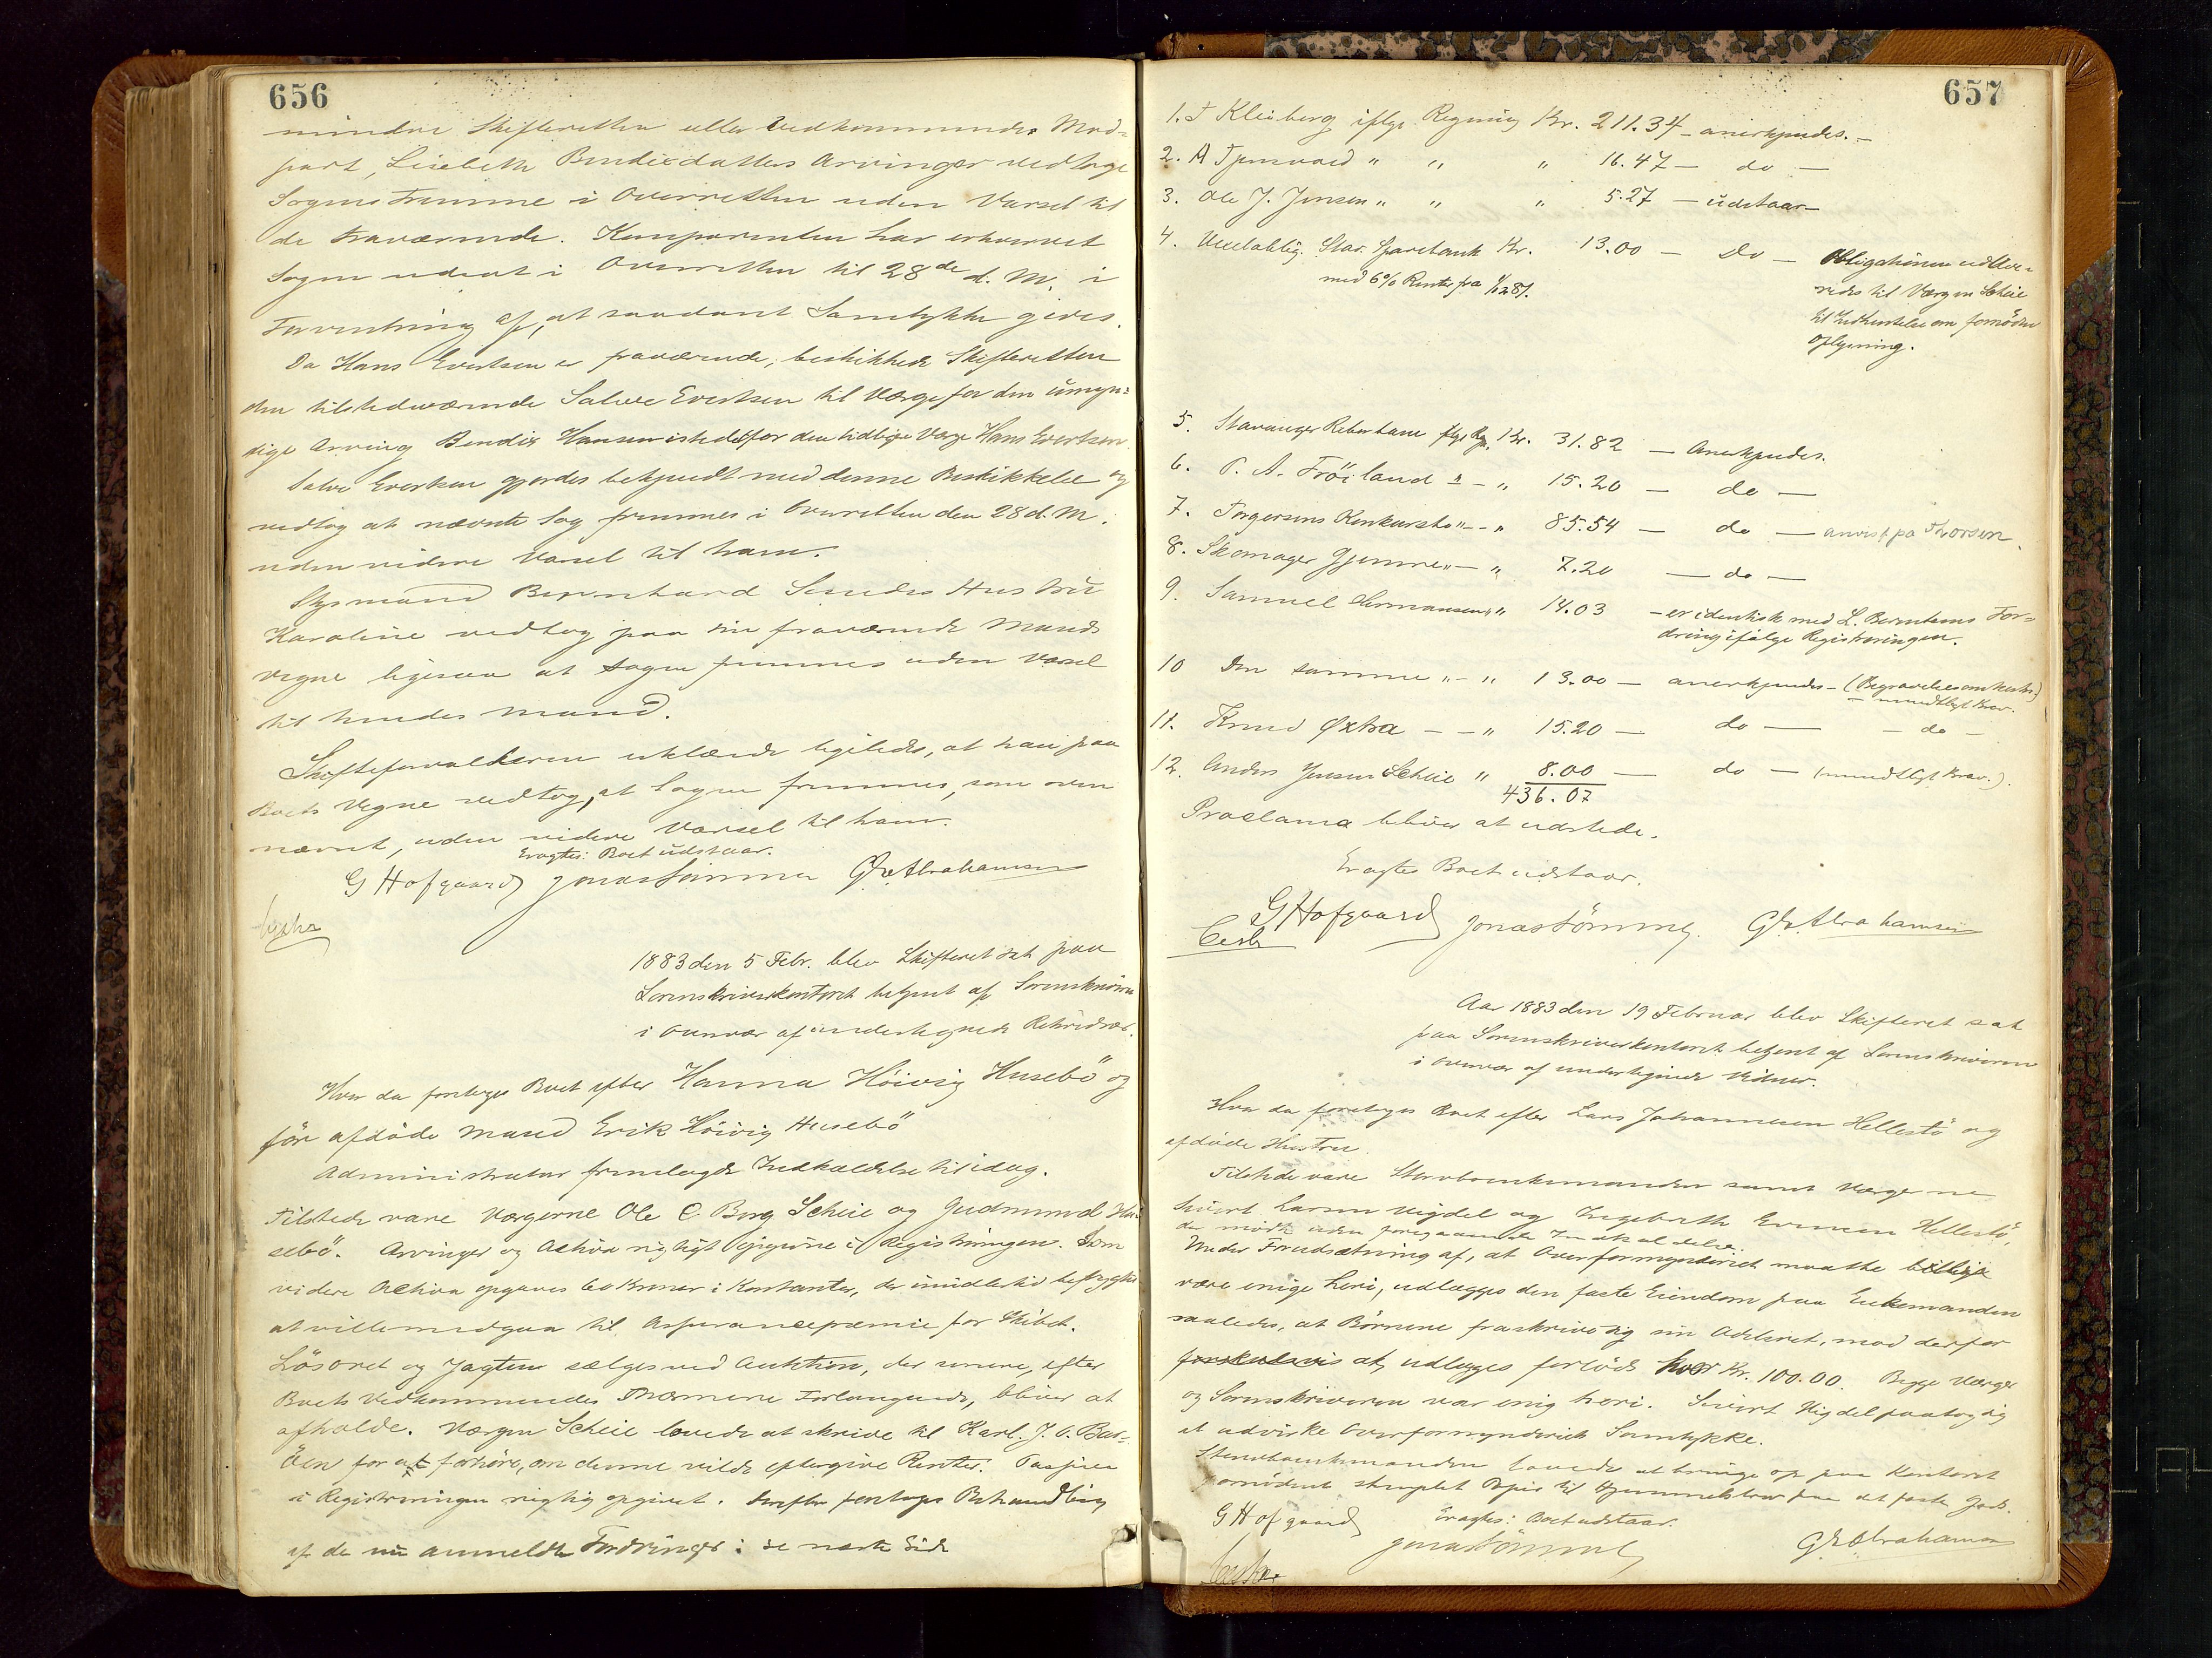 656
mindre Skifteretten eller Vedkommendes Mod-
part, Lisebeth Bendixdatters Arvinger vedtage
Sagens Fremme i Overretten uden Varsel til
de fraværende. Komparenten har erhvervet
Sagen udsat i Overretten til 28de d. M. i
Forventning af, at saadant Samtykke gives.
Da Hans Evertsen er fraværende, beskikkede Skifteretten
den tilstedeværende Salve Evertsen til Værge for den umyn-
dige Arving Bendix Hansen istedetfor den tidligere Værge Hans Evertsen
Salve Evertsen gjordes bekjendt med denne Beskikkelse og
vedtog at nævnte Sag fremmes i Overretten den 28 d. M.
uden videre Varsel til ham.
Styrmand Berntard Hustru
Karoline vedtog paa sin fraværende Mands
Vegne ligesaa at Sagen fremmes uden Varsel
til hendes Mand.
Skifteforvalteren erklærede ligeledes, at han paa
Boets Vegne vedtog, at Sagen fremmes, som oven
nævnt, uden videre Varsel til ham.
Eragtes: Boet udstaar.
G Hofgaard Jonas Sömme G. Abrahamsen
1883 den 5 Febr. blev Skifteret sat paa
Sorenskriverkontoret betjent af Sorenskriveren
i Overvær af undertegnede Retsvidner.
Hvor da foretoges Boet efter Hanna Höivig Husebö og
för afdöde Mand Erik Höivig Husebö
Administrator fremlagde Indkaldelse til idag.
Tilstede vare Værgerne Ole C. Berg Scheie og Gudmund Hu-
sebö. Arvinger og Activa rigtigt opgivne i Registreringen. Som
videre Activa opgaves 60 Kroner i Kontanter, der imidlertid befrygtes
at ville medgaa til Assurancepræmie for Skibet.
Lösöret og Jagten sælges ved Auktion, der senere, efter
Boets Vedkommendes nærmere Forlangende, bliver at
afholde. Værgen Scheie lovede at skrive til Karl. J. O. Bus-
öen for at forhöre, om denne vilde eftergive Renter. Passiva
i Registreringen rigtig opgivet. Derefter foretoges Behandling
af de nu anmeldte Fordringer: se næste Side
657
1. J Kleiberg iflge Regning Kr. 211.34 - anerkjendes. -
2. A Tjensvold " " " 16.47 - do -
3. Ole J. Jensen " " " 5.27 - udstaar -
4. Vexeloblig. Stav. Sparebank Kr. 13.00 - Do - Obligationen udleve-
med 6% Renter fra 1/12 81. redes til Værgen Scheie
til Indhentelse om fornöden
Oplysning.
5. Stavanger Reberbane flge Rg. Kr. 31.82 - Anerkjendes.
6. P. A. Fröiland " - " 15.20 - do -
7. Torgersens Konkursbo " - " 85.54 - do - anvist pa Thorsen.
8. Skomager Gjemre " - " 7.20 - do -
9. Samuel Hermansen " " 14.03 - er identisk med L. Berntsens For-
dring ifölge Registreringen.
10 Den samme " - " 13.00 - anerkjendes - (Begravelsesomkostn.)
- mundtligt Krav.
11. Knud Öxtra - - " 15.20 - do - - do -
12. Anders Jensen Scheie " 8.00 - do - (mundtligt Krav.)
436.07
Proclama bliver at udstede.
Eragtes Boet udstaar.
G Hofgaard Jonas Sömme. G. Abrahamsen
Aar 1883 den 19 Februar blev Skifteret sat
paa Sorenskriverkontoret betjent af Sorenskriveren
i Overvær af undertegnede Vidner.
Hvor da foretoges Boet efter Lars Johannesen Hellestö og
afdöde Hustru.
Tilstede vare Stervboenkemanden samt Værgerne
Sivert Larsen Vigdel og Ingebreth Hellestö,
de mödte uden foregaaende Indkaldelse.
Under Forudsætning af, at Overformynderiet maatte billige
være enige heri, udlægges den faste Eiendom paa Enkemanden
saaledes, at Börnene fraskrive sig sin Odelsret, mod derfor
at udlægges forlods hver Kr. 100.00. Begge Værger
og Sorenskriveren var enig heri. Sivert Vigdel paatog sig
at udvirke Overformynderiets Samtykke.
Stervboenkemanden lovede at bringe op paa Kontoret
fornödent stemplet Papir til Hjemmelsbrev paa det faste Gods.
Eragtes: Boet udstaar.
G Hofgaard Jonas Sömme G. Abrahamsen